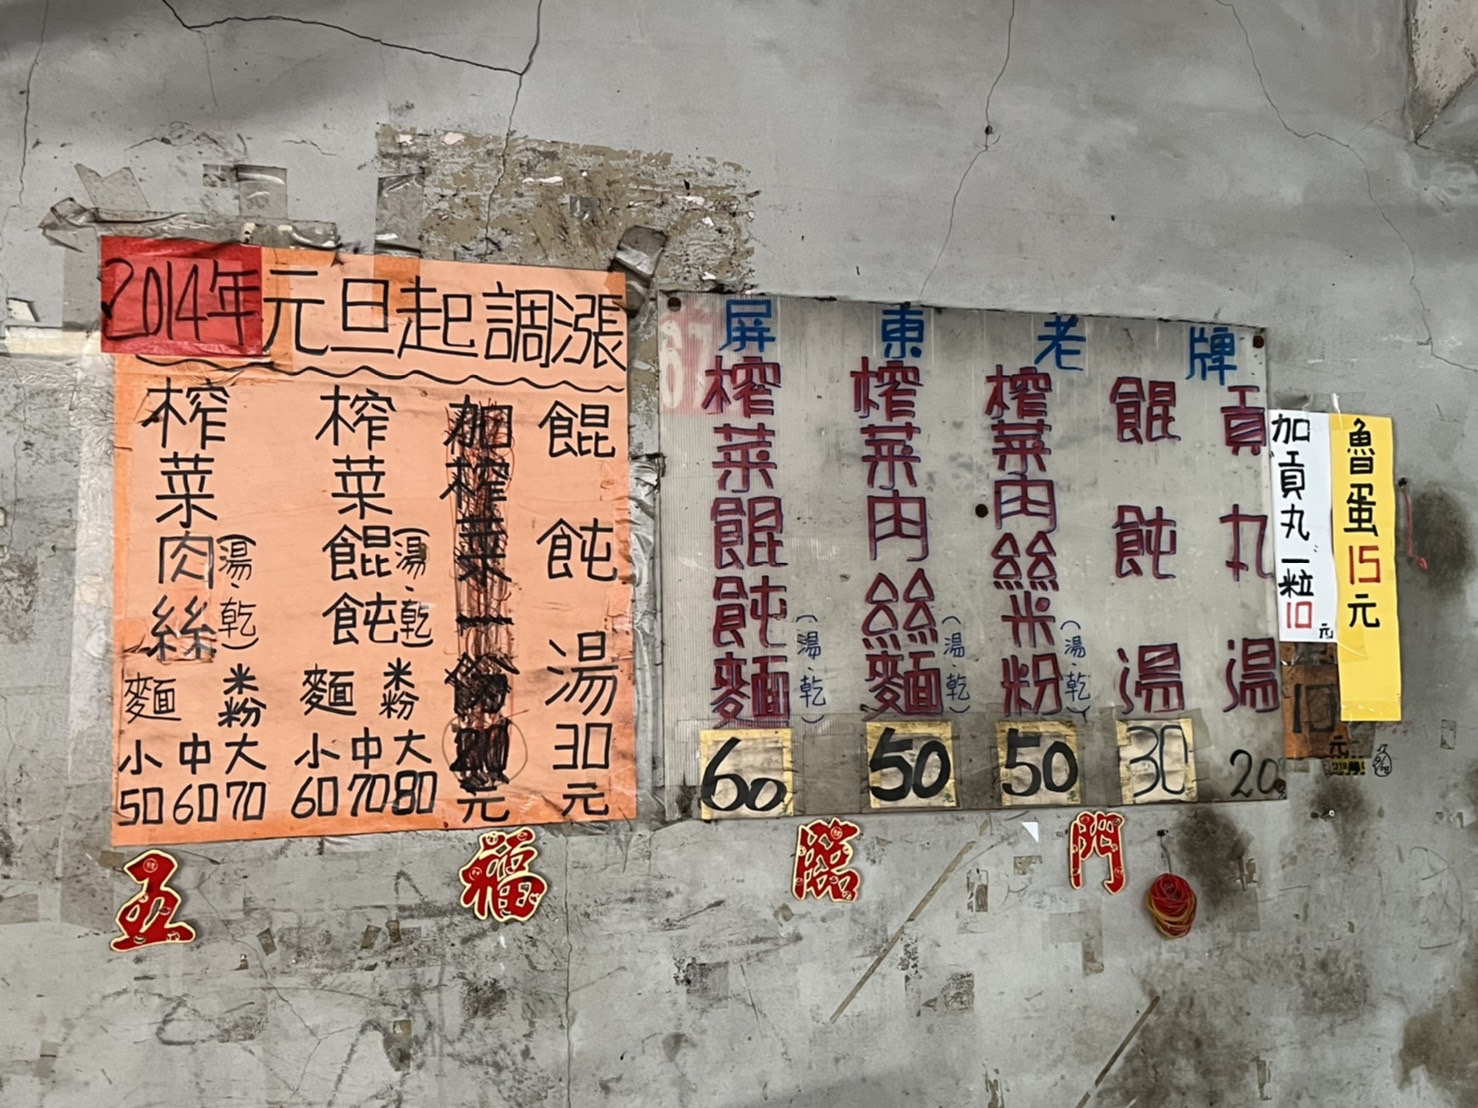 2014年元旦起調漲
榨菜肉絲(湯.乾)
麵 米粉
小 中 大
50 60 70
榨菜餛飩(湯.乾)
麵 米粉
小 中 大
60 70 80
加榨菜一份
元
餛飩湯30元
屏東老牌
榨菜餛飩麵(湯.乾)60
榨菜肉絲麵(湯.乾)50
榨菜肉絲米粉(湯.乾)50
餛飩湯30
貢丸湯20
加貢丸一粒10元
魯蛋15元
10元
五福臨門